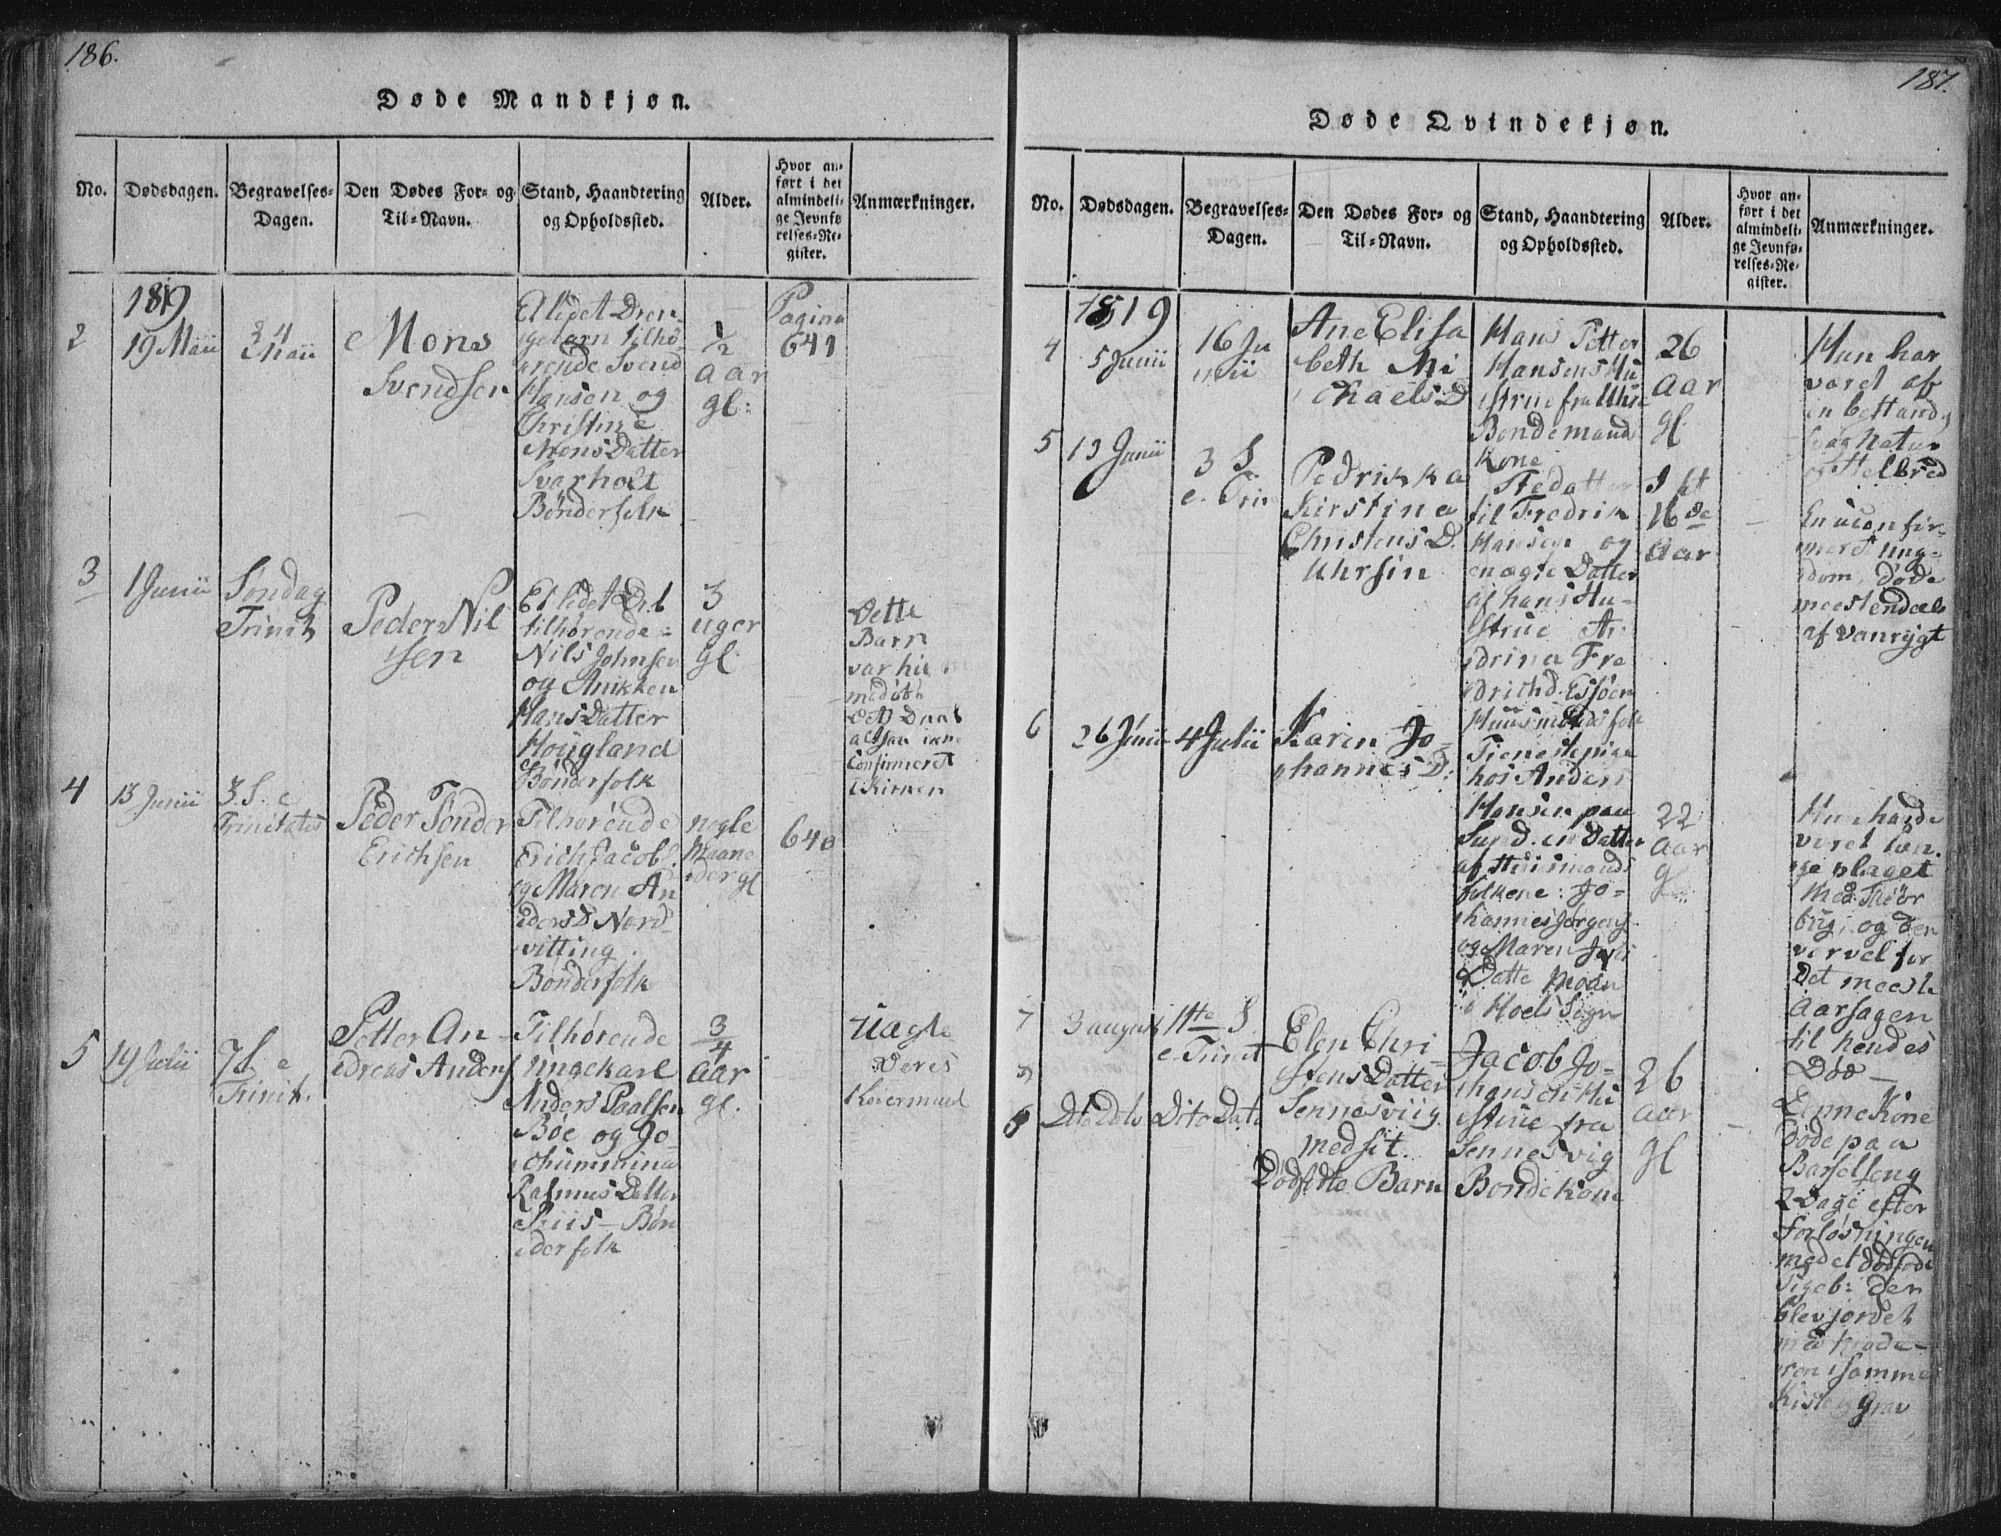 186.
Døde Mandkjøn.
No.
Dødsdagen.
Begravelses-
Dagen.
Den Dødes For- og
Til-Navn.
Stand, Haandtering
og Opholdssted.
Alder.
Hvor an-
ført i det
almindeli-
ge Jevnfø
relses-Re-
gister.
Anmærkninger.
1819
2
19 Maii
Maii
Mons
Svendsen
Et lidet Dren-
gebarn tilhø-
rende Svend
Hansen og
Christine
MonsDatter
Svarholt
Bønderfolk
1/2
Aar
gl:
Pagina
641
3
1 Junii
Søndag
Trinit
Peder Nil
sen
Et lidet D.b
tilhørende
Nils Johnsen
og Anikken
HansDatter
Hougland
Bønderfolk
3
uger
gl.
Dette
Barn
var
Confirmeret
i Kirken
4
13 Junii
3. S. e
Trinitates
Peder Tønder
Erichsen
Tilhørende
Erich Jacobs.
og Maren An
ders D Nord
vitting.
Bønderfolk
nogle
Maane
der gl
640
5
19 Julii
7 S. e
Trinit.
Petter An-
dreas Anders
Tilhørende
Ungekarl
Anders Paalsen
Bøe og Jo
chummina
RasmusDatter
Priis - Bøn
derfolk
3/4
Aar
gl.
Uægte
Deres
Leiermaal
187.
Døde Qvindekjøn.
No.
Dødsdagen.
Begravelses-
Dagen.
Den Dødes For- og
Til-Navn.
Stand, Haandtering
og Opholdssted.
Alder.
Hvor an-
ført i det
almindeli-
ge Jevnfø-
relses-Re-
gister.
Anmærkninger.
1819
4
5 Junii
16 Ju
nii
Ane Elisa
beth Mi
chaels D
Hans Petter
Hansens Hu
strue fra
Bondemands
Kone
26
Aar
gl.
Hun har
været af
en bestandig
svag Natur
og Helbred
5
13 Junii
3 S.
e. Trin
Pedrikka
Kirstina
Christens D.
Uhrsin
Stedatter
til Fredrik
Hansen og
en ægte Datter
af hans Hu-
strue
drina Fre
drichsd.
Huusmandsfolk
16 de
Aar
En uconfir-
meret ung-
dom, døde
meestendeels
af vanrygt
6
26 Junii
4 Julii
Karen Jo-
hannes D:
Tienestepige
hos Anders
Hansen paa
Sund. en Datter
af Huusmands
folkene: Jo-
hannes Jørgens
og Maren
Datte Moan
i Hoels Sogn
22
Aar
gl.
Hun havde
været læn-
ge plaget
med Skiør
bug, og den
var vel for
det meeste
Aarsagen
til hendes
Død -
7
3 august
11te S.
e. Trinit
Elen Chri-
stensDatter
Sennesviig
med sit
Dødfødte Barn
Jacob Jo-
hansens Hu
strue fra
Sennesvig
Bondekone
26
Aar
gl
8
Dito Dito
Dito Dato
Denne Kone
døde paa
Barselseng
2 Dage efter
Forløsningen
med et dødfødt
Pigeb: der
blev jordet
med Mode-
ren i samme
Kiste og Grav